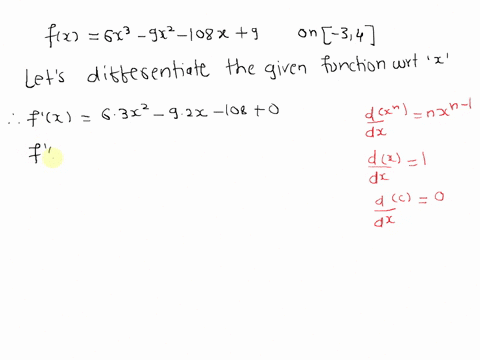 f(x) = 6x³ - 9x² - 108x + 9 on [-3,4]
Let's differentiate the given function wrt 'x'
∴ f'(x) = 6·3x² - 9·2x - 108 + 0
f'
d(xⁿ)/dx = nxⁿ⁻¹
d(x)/dx = 1
d(c)/dx = 0